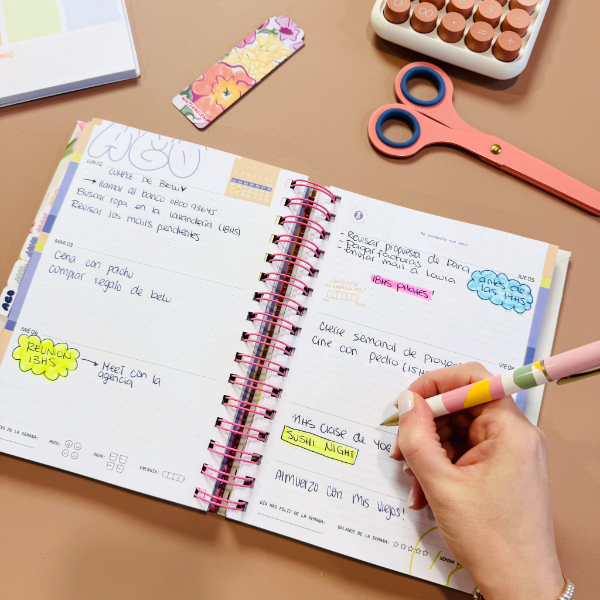 AGO
LUNES
CUMPLE DE BELU
→ llamar al banco 0800
Buscar ropa en la lavandería (18HS)
Revisar los mails pendientes
MARTES
Cena con pachu
comprar regalo de belu
MIÉRCOLES
REUNIÓN
13HS
→ Meet con la
agencia
DE LA SEMANA:
MOOD:
AGUA:
ENERGÍA:
JUEVES
- Revisar propuesta de Dana
- Pagar facturas
- enviar mail a Laura
antes de
las 17HS
18HS pilates!
VIE
cierre semanal de
cine con pedro (15H
11HS clase de
SUSHI NIGHT
Almuerzo con mis viejos!
DÍA MÁS FELIZ DE LA SEMANA:
BALANCE DE LA SEMANA:
SEMANA